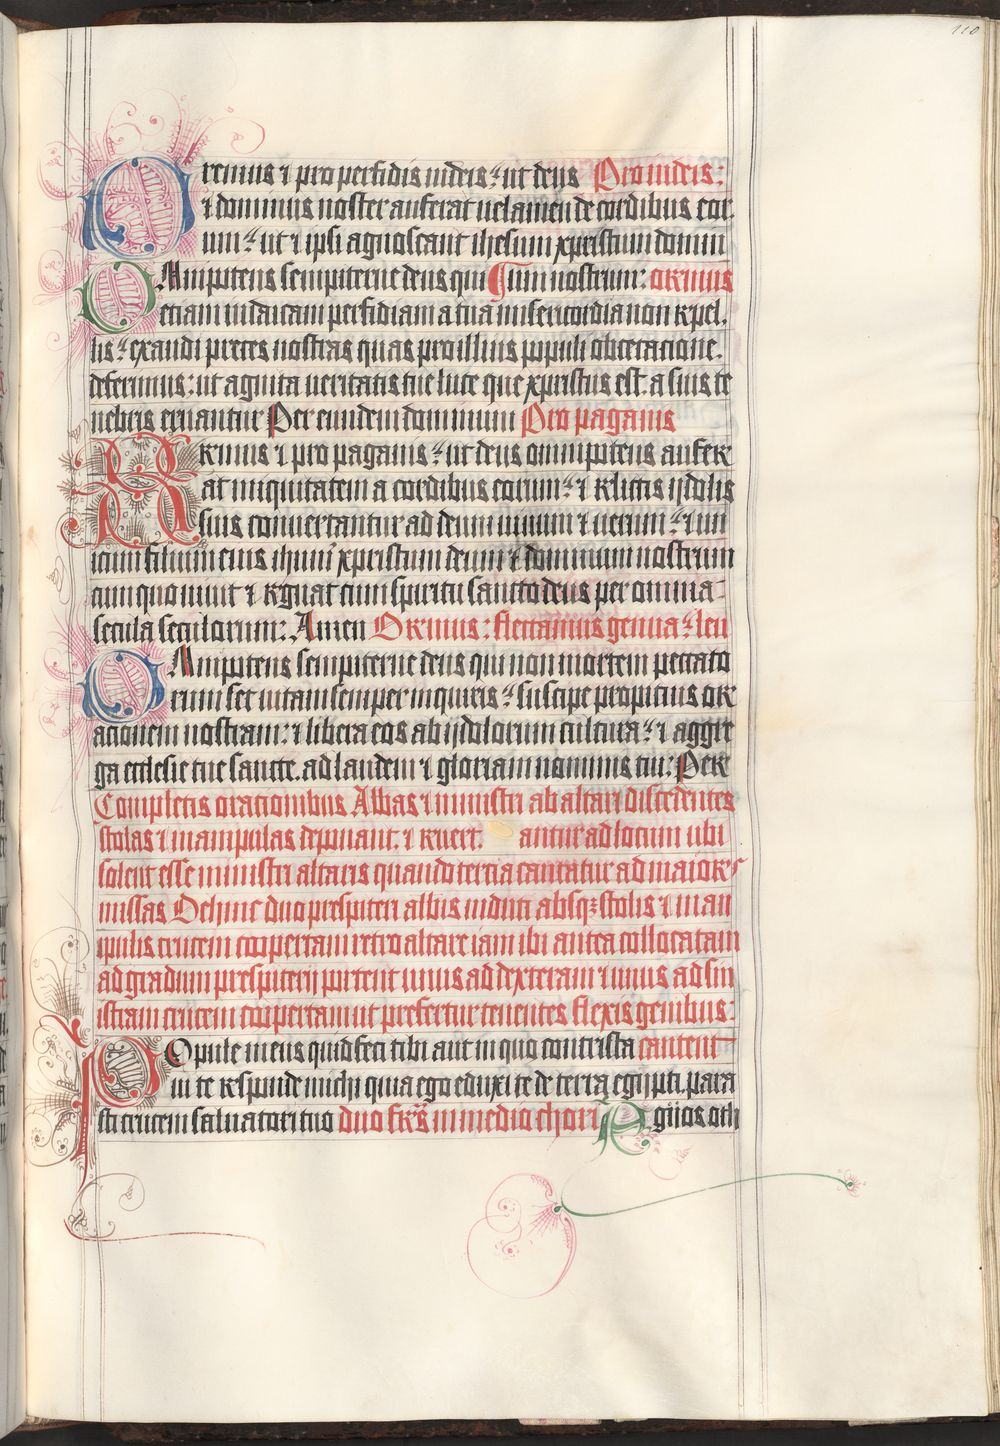 110
Oremus et pro perfidis iudeis: ut deus Pro iudeis:
et dominus noster auferat uelamen de cordibus eor
um: ut et ipsi agnoscant ihesum xpristum domin
OMnipotens sempiterne deus qui um nostrum: oremus
etiam iudaicam perfidiam a tua misericordia non repel
lis: exaudi preces nostras quas pro illius populi obcecatione.
deferimus: ut agnita ueritatis tue luce que xpristus est. a suis te
nebris eruantur Per eundem dominum Pro paganis
Oremus et pro paganis: ut deus omnipotens aufer
at iniquitatem a cordibus eorum: et relictis ijdolis
suis conuertantur ad deum uiuum et uerum: et un
icum filium eius ihum xpristum deum et dominum nostrum
cum quo uiuit et regnat cum spiritu sancto deus per omnia
secula seculorum: Amen Oremus: flectamus genua: leu
OMnipotens sempiterne deus qui non mortem peccato
rum set uitam semper inquiris: suscipe propicius or
acionem nostram: et libera eos ab ijdolorum cultura: et aggre
ga ecclesie tue sancte. ad laudem et gloriam nominis tui: Per
Completis oracionibus Abbas et ministri ab altari discedentes
stolas et manipulas deponant. et reuert. antur ad locum ubi
solent esse ministri altaris quando tercia cantatur ad maiores
missas Dehinc duo prespiteri albis induti absque stolis et man
ipulis crucem coopertam retro altare iam ibi antea collocatam
ad gradum prespiterij portent unus ad dexteram et unus ad sin
istram crucem coopertam ut prefertur tenentes flexis genibus:
POpule meus quid feci tibi aut in quo contrista cantent
ui te respunde michi quia ego eduxi te de terra egipti. para
sti crucem saluatori tuo duo frs in medio chori Agijos oth